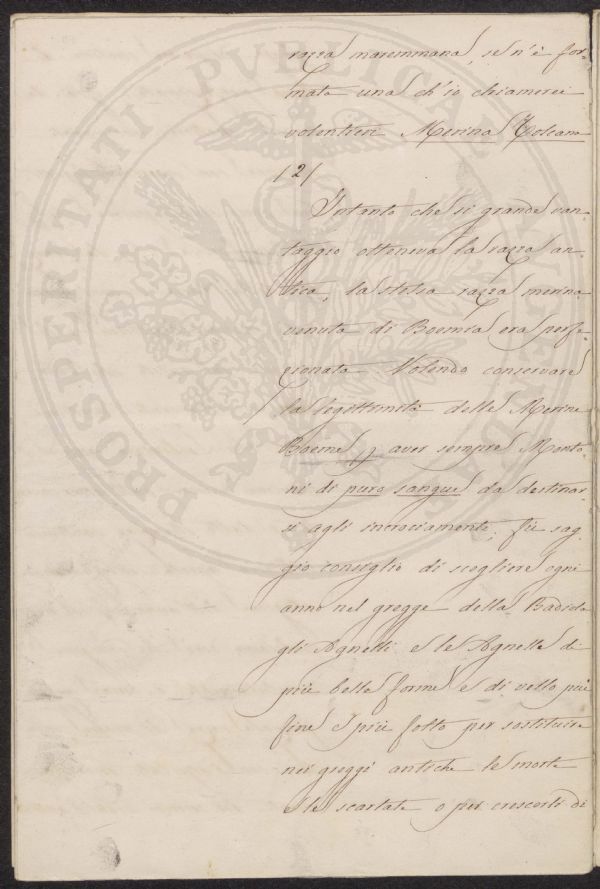 razza maremmana, se n'è for-
mata una ch'io chiamerei
volentieri Merina Toscana
/2/
Intanto che sì grande van-
taggio otteneva la razza an-
tica, la stessa razza merina
venuta di Boemia era perfe-
zionata. Volendo conservare
la legittimità delle Merine
Boeme, e aver sempre Monto-
ni di puro sangue da destinar-
si agli incrociamenti, fù sag-
gio consiglio di scegliere ogni
anno nel gregge della Badiola
gli Agnelli e le Agnelle di
più belle forme e di vello più
fine e più folto per sostituire
nei greggi antiche le morte
e le scartate o per crescerli di
PROSPERITATI PUBLICAE AUGENDAE